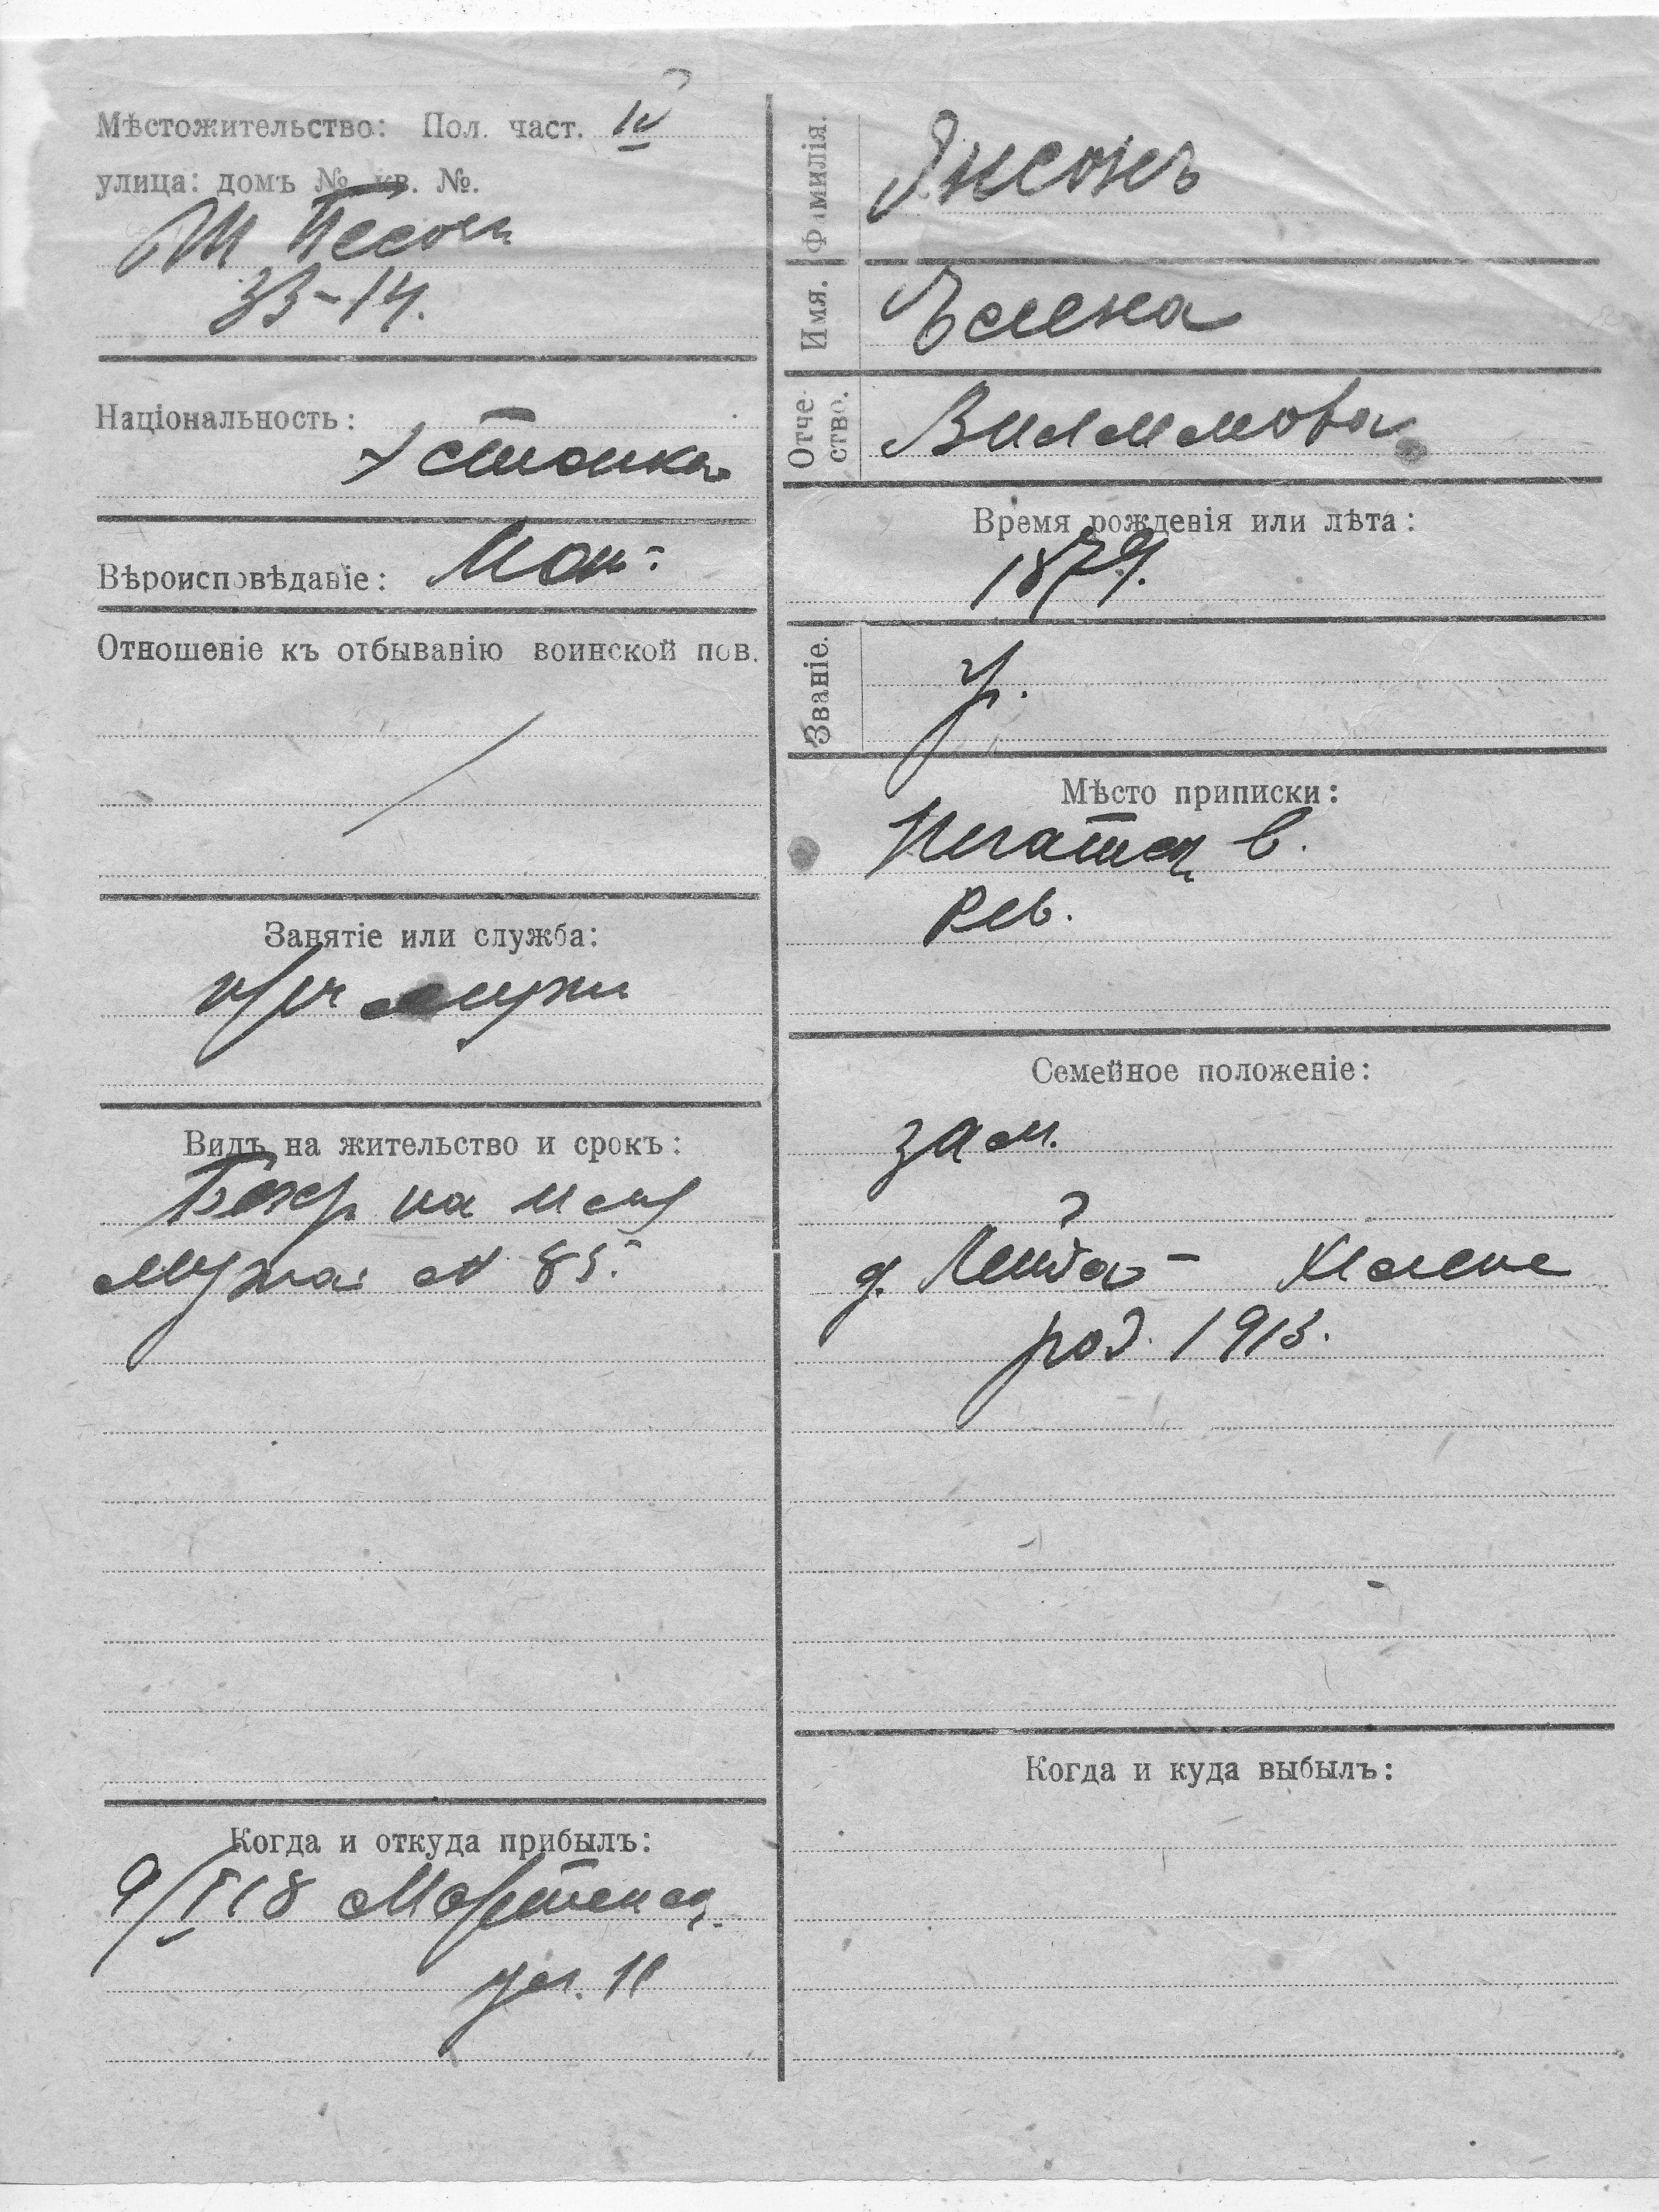 Мѣстожительство: Пол. част. IV
улица: домъ № кв. №.
33-14.
Національность:
Эстонка
Вѣроисповѣданіе:
Отношеніе къ отбыванію воинской пов.
Занятіе или служба:
при мужи
Видъ на жительство и срокъ:
на имя
мужа N 85.
Когда и откуда прибылъ:
9/V 18
ул. 11
Фамилія.
Янсонъ
Имя.
Елена
Отчество.
Виллимова
Время рожденія или лѣта:
1879.
Званіе.
кр.
Мѣсто приписки:
в.
Рев.
Семейное положеніе:
зам.
д.
род. 1913.
Когда и куда выбылъ: